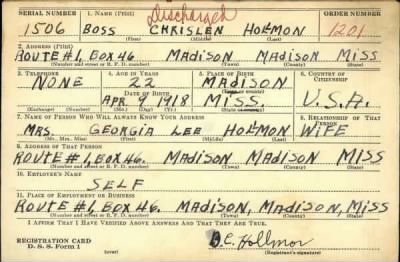 Discharged
SERIAL NUMBER 1. NAME (Print) ORDER NUMBER
1506 BOSS CHRISLEN HOLMON 1221
(First) (Middle) (Last)
2. ADDRESS (Print)
ROUTE #1, BOX 46 MADISON MADISON MISS
(Number and street or R. F. D. number) (Town) (County) (State)
3. TELEPHONE 4. AGE IN YEARS 5. PLACE OF BIRTH 6. COUNTRY OF CITIZENSHIP
NONE 22 MADISON
DATE OF BIRTH (Town or county)
APR 9 1918 MISS. U.S.A.
(Exchange) (Number) (Mo.) (Day) (Yr.) (State or country)
7. NAME OF PERSON WHO WILL ALWAYS KNOW YOUR ADDRESS 8. RELATIONSHIP OF THAT PERSON
MRS. GEORGIA LEE HOLMON WIFE
(Mr., Mrs., Miss) (First) (Middle) (Last)
9. ADDRESS OF THAT PERSON
ROUTE #1, BOX 46. MADISON MADISON MISS
(Number and street or R. F. D. number) (Town) (County) (State)
10. EMPLOYER'S NAME
SELF
11. PLACE OF EMPLOYMENT OR BUSINESS
ROUTE #1, BOX 46. MADISON, MADISON, MISS
(Number and street or R. F. D. number) (Town) (County) (State)
I AFFIRM THAT I HAVE VERIFIED ABOVE ANSWERS AND THAT THEY ARE TRUE.
REGISTRATION CARD
D. S. S. Form 1 B.C. Hollmon
(Registrant's signature)